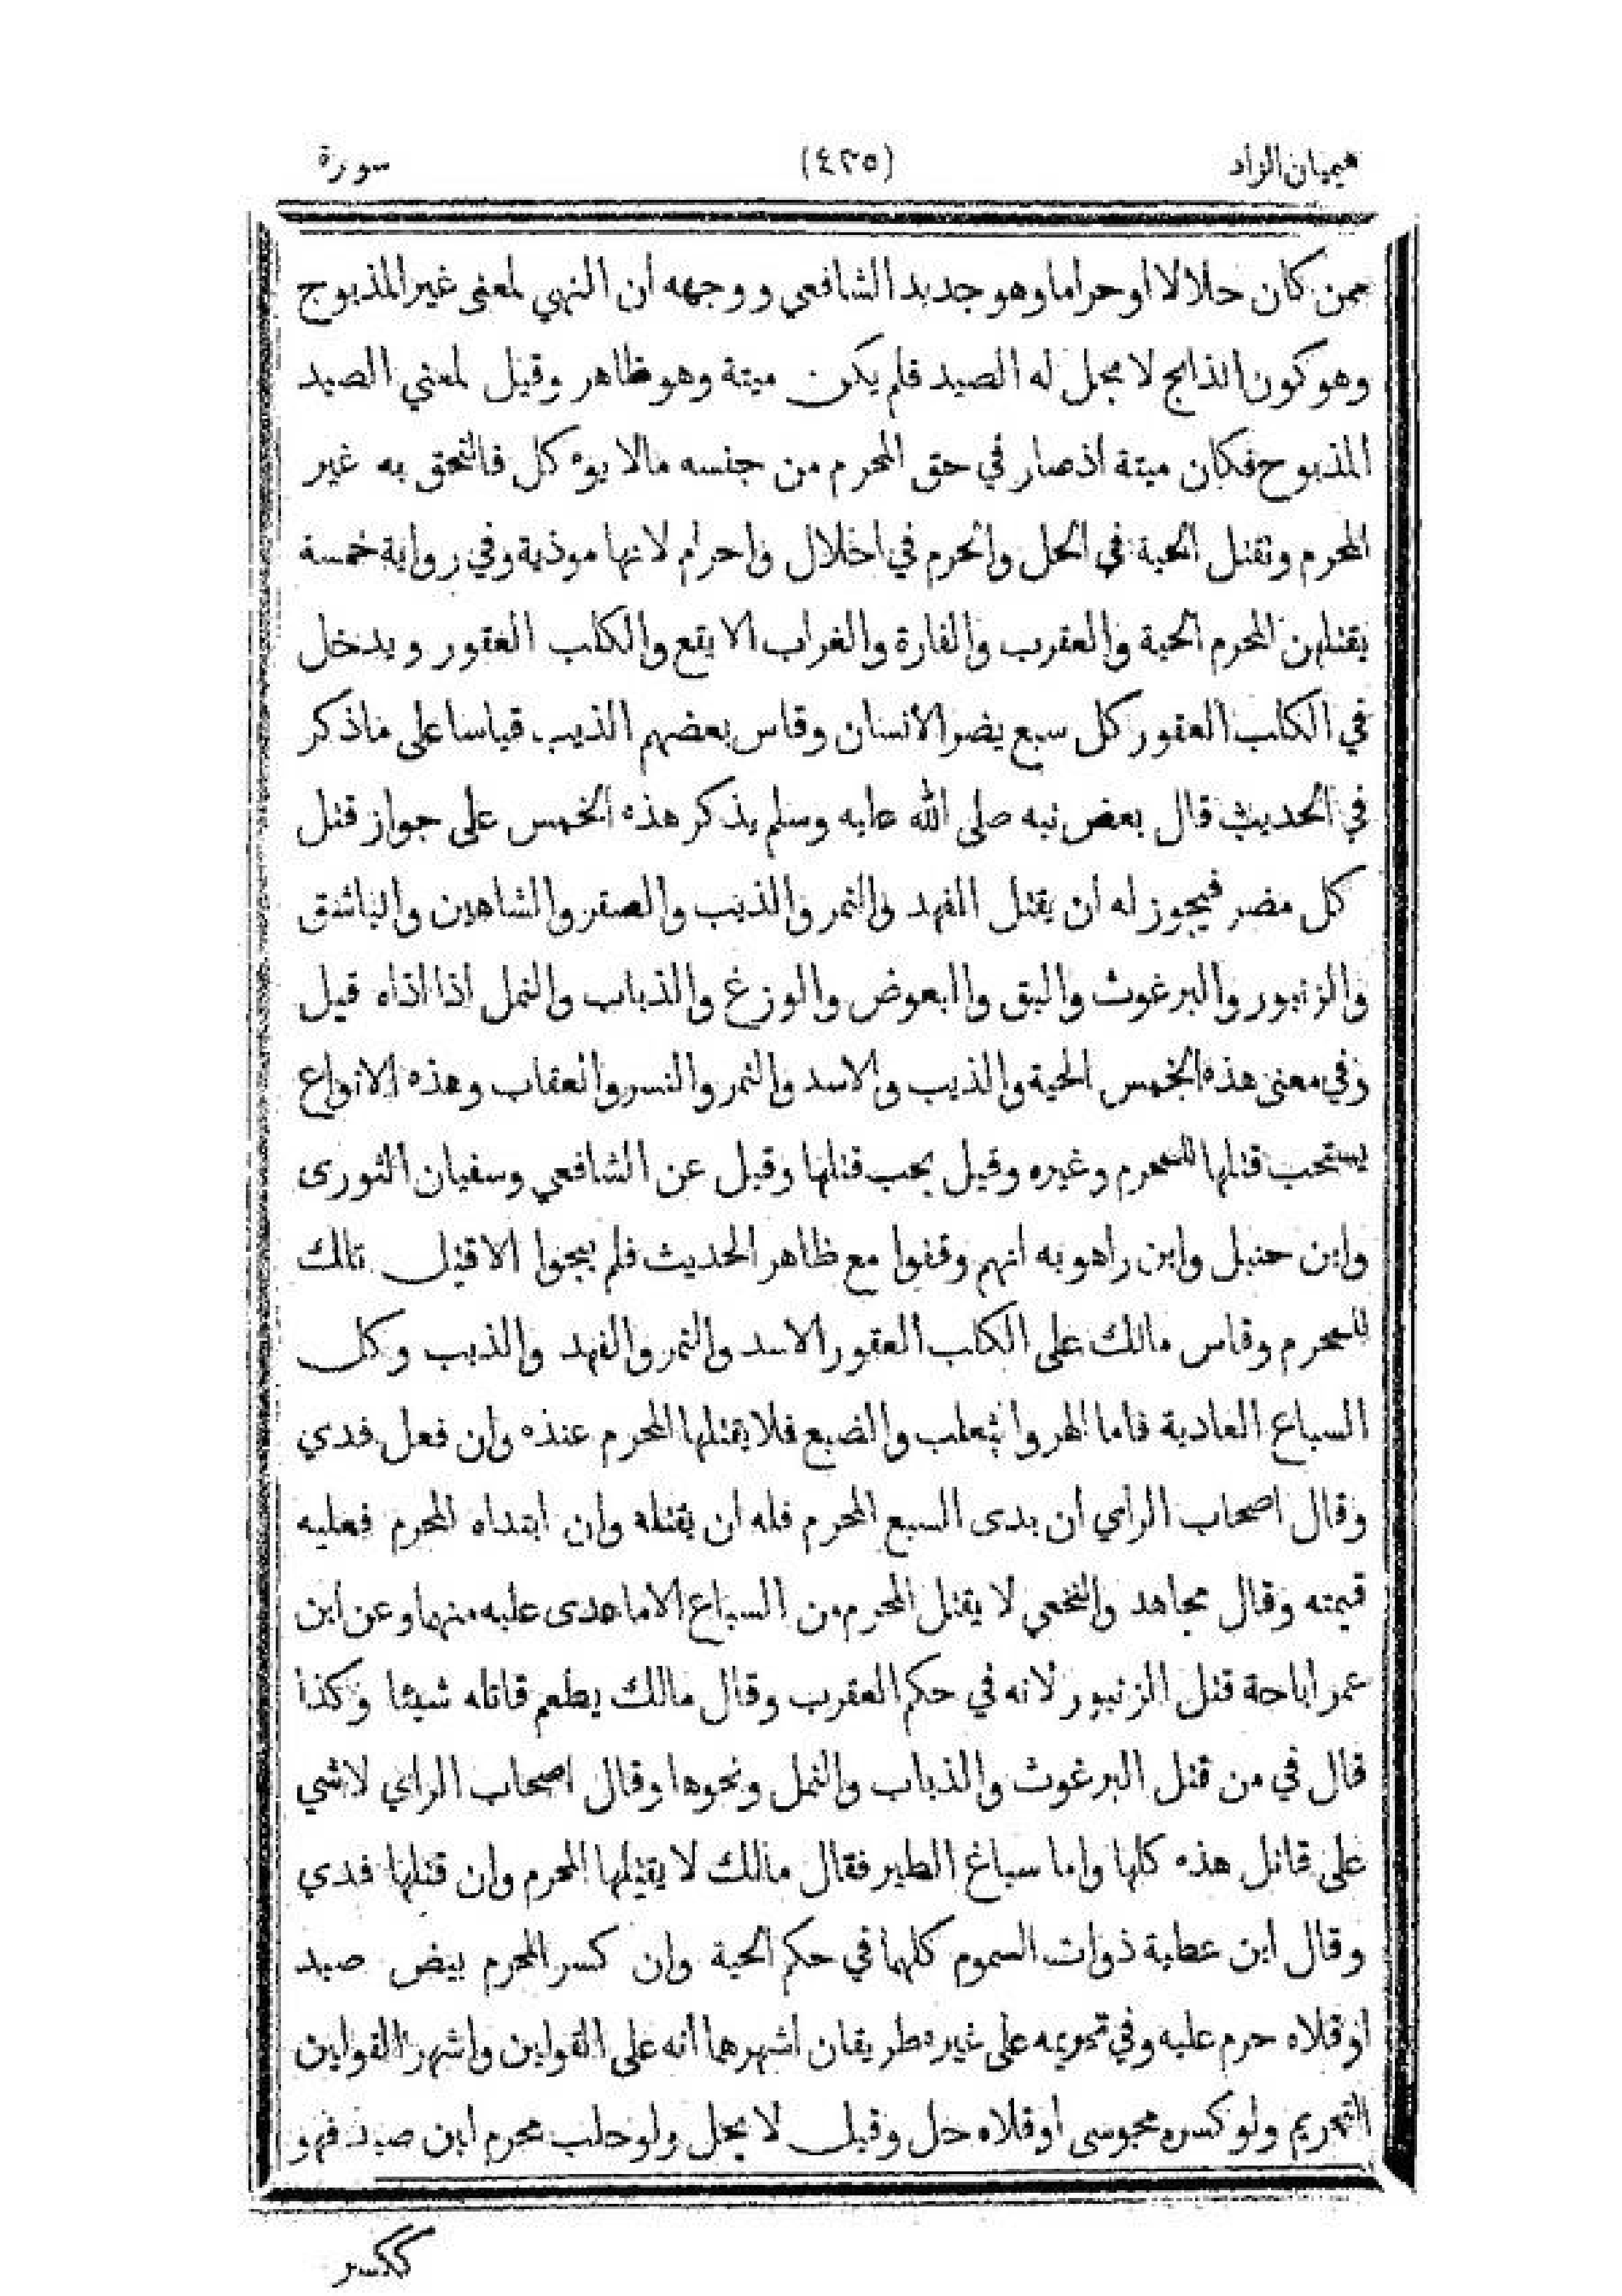 هيميان الزاد (٤٣٥) سورة
ممن كان حلالا او حراما وهو جديد الشافعي ووجهه ان النهي لمعنى غير المذبوح
وهو كون الذابح لا يحل له الصيد فلم يكن ميتة وهو ظاهر وقيل لمعني الصيد
المذبوح فكان ميتة اذ صار في حق المحرم من جنسه مالا يوٴكل فالتحق به غير
المحرم وتقتل الحية في الحل والحرم في احلال واحرام لانها موذية وفي رواية خمسة
يقتلهن المحرم الحية والعقرب والفارة والغراب الابقع والكلب العقور ويدخل
في الكلب العقور كل سبع يضر الانسان وقاس بعضهم الذيب قياسا على ماذكر
في الحديث قال بعض نبه صلى الله عليه وسلم بذكر هذه الخمس على جواز قتل
كل مضر فيجوز له ان يقتل الفهد والنمر والذيب والصقر والشاهين والباشق
والزنبور والبرغوث والبق والبعوض والوزغ والذباب والنمل اذا اذاه قيل
وفي معنى هذه الخمس الحية والذيب والاسد والنمر والنسر والعقاب وهذه الانواع
يستحب قتلها للمحرم وغيره وقيل يجب قتلها وقيل عن الشافعي وسفيان الثورى
وابن حنبل وابن راهويه انهم وقفوا مع ظاهر الحديث فلم يبيحوا الا قتل تلك
للمحرم وقاس مالك على الكلب العقور الاسد والنمر والفهد والذيب وكل
السباع العادية فاما الهر والثعلب والضبع فلا يقتلها المحرم عنده وان فعل فدي
وقال اصحاب الراي ان بدى السبع المحرم فله ان يقتله وان ابتداه المحرم فعليه
قيمته وقال مجاهد والنخعي لا يقتل المحرم من السباع الا ماعدى عليه منهما وعن ابن
عمر اباحة قتل الزنبور لانه في حكم العقرب وقال مالك يطعم قاتله شيئا وكذا
قال في من قتل البرغوث والذباب والنمل ونحوها وقال اصحاب الراي لا شي
على قاتل هذه كلها واما سباغ الطير فقال مالك لا يقتلها المحرم وان قتلها فدي
وقال ابن عطية ذوات السموم كلها في حكم الحية وان كسر المحرم بيض صيد
او قلاه حرم عليه وفي تحريمه على غيره طريقان اشهرهما أنه على القولين واشهر القولين
التحريم ولو كسره مجوسى او قلاه حل وقيل لا يحل ولو حلب محرم لبن صيد فهو
ككسر